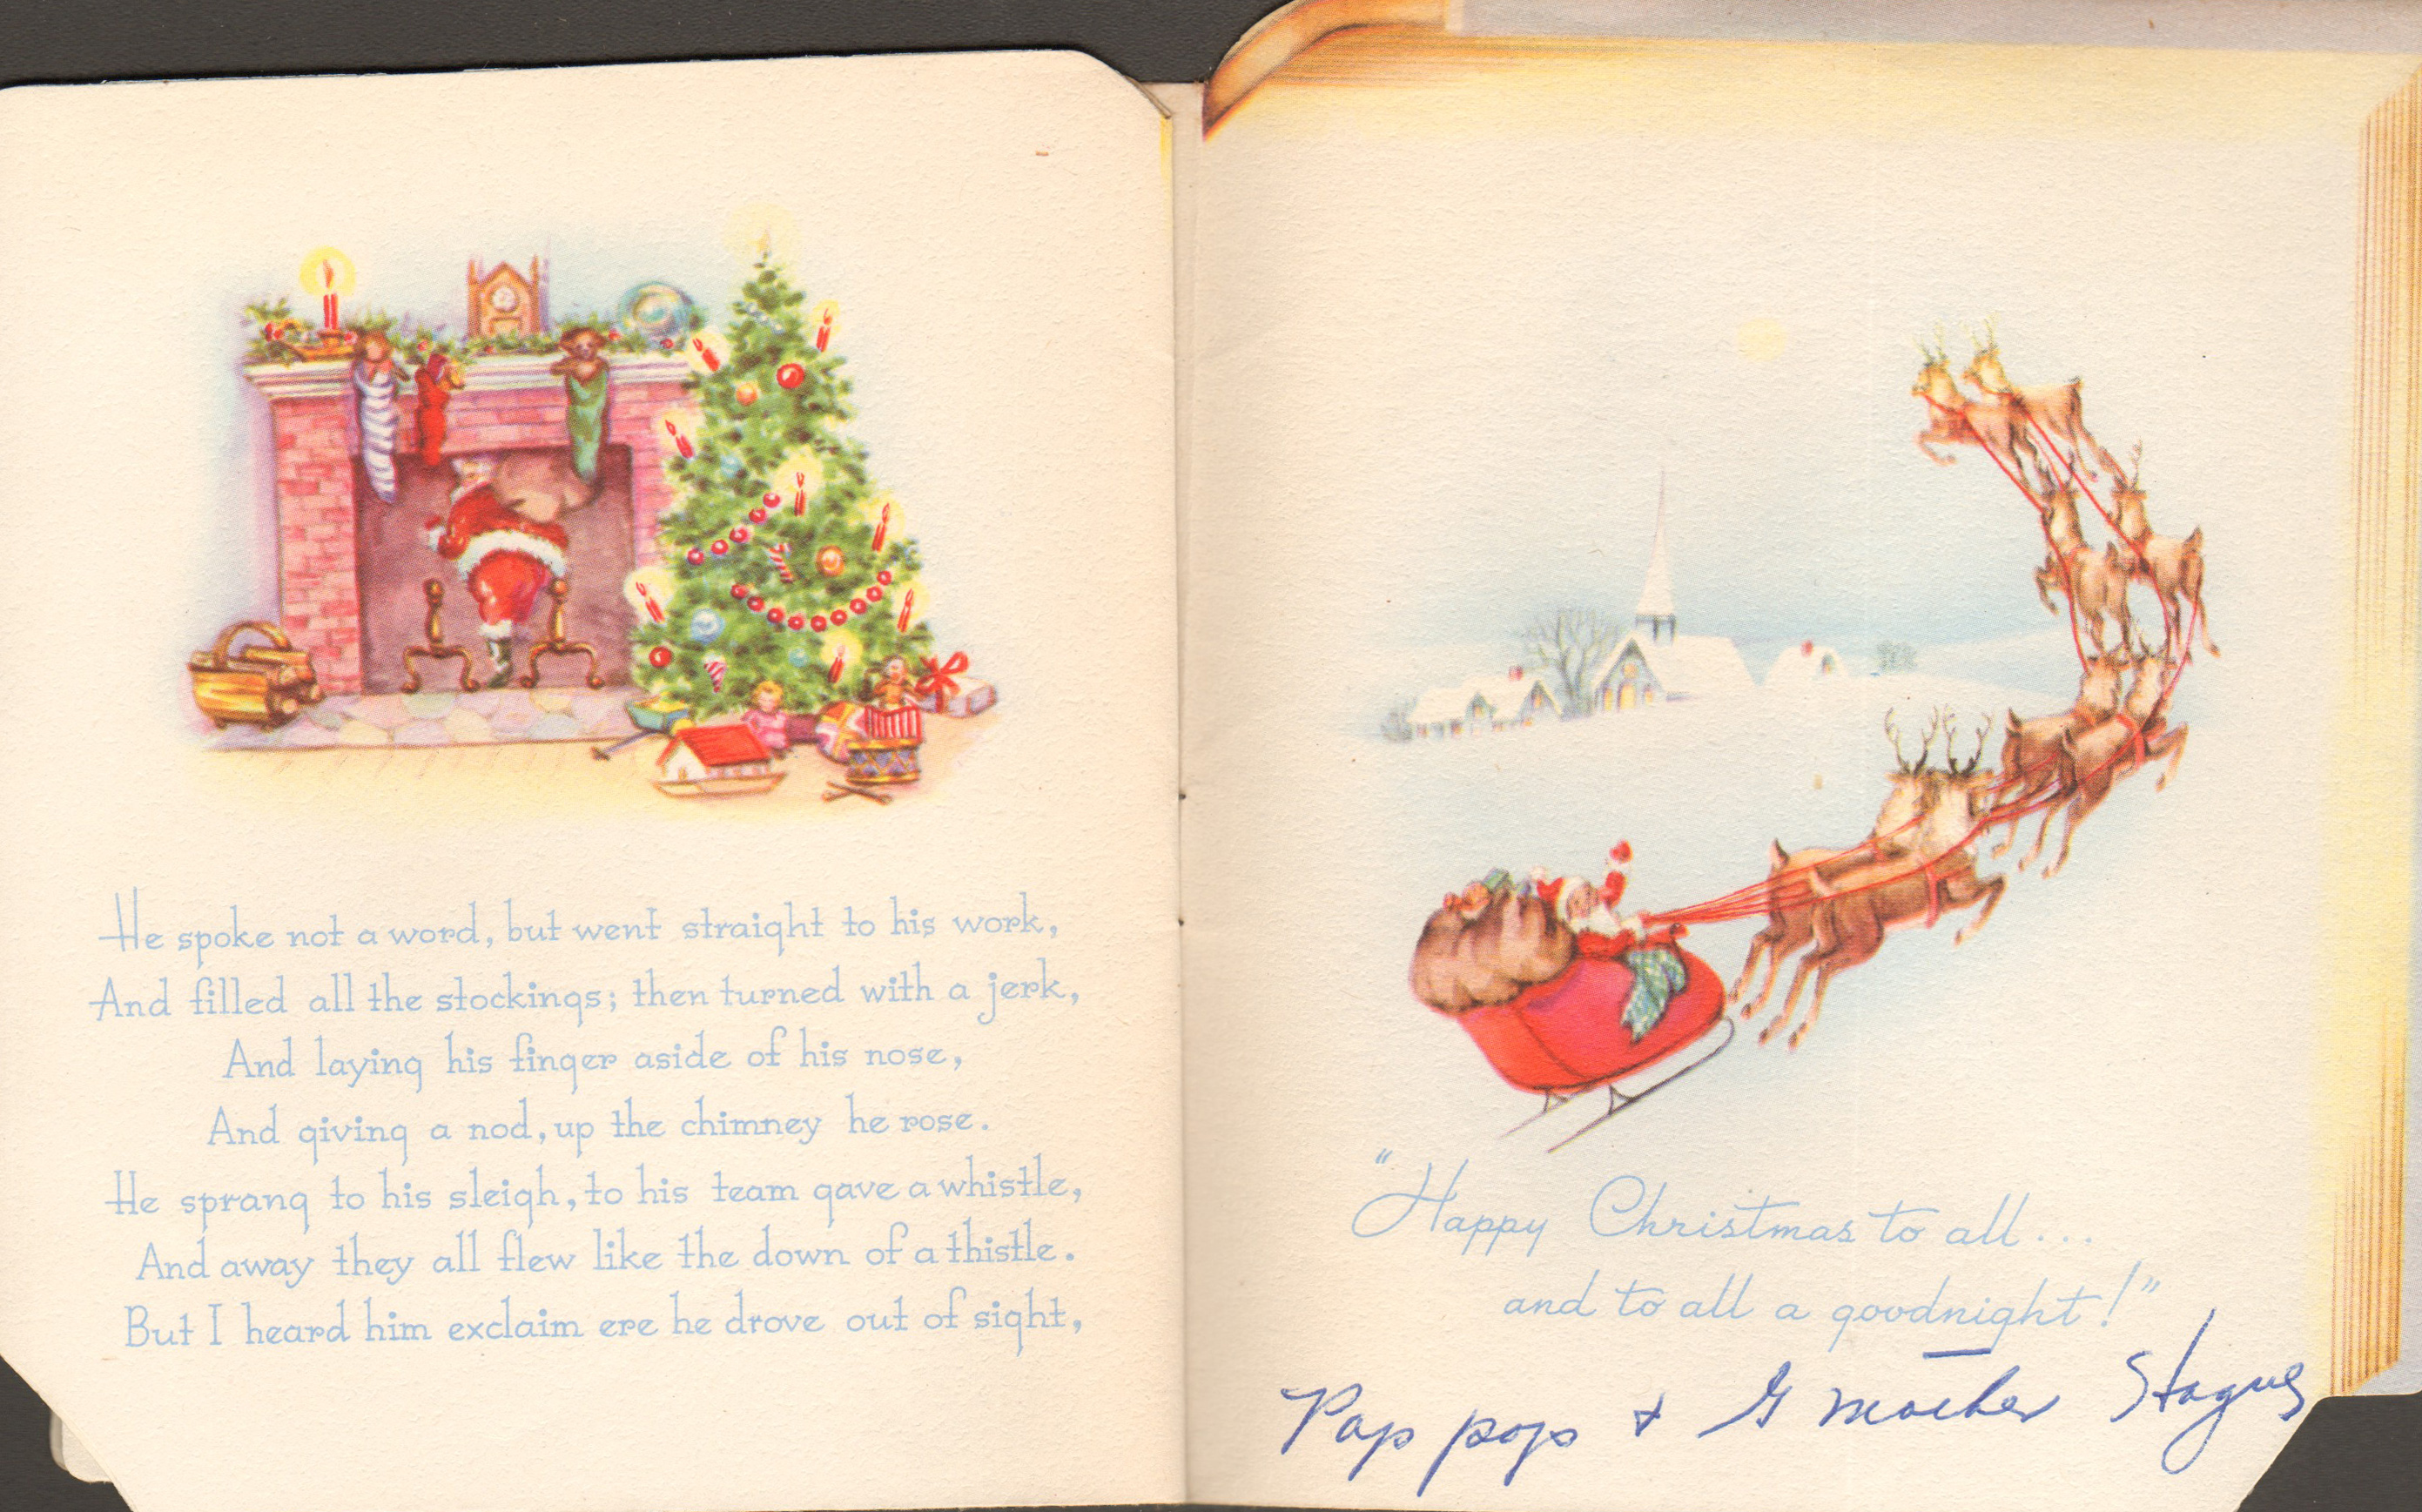 He spoke not a word, but went straight to his work,
And filled all the stockings; then turned with a jerk,
And laying his finger aside of his nose,
And giving a nod, up the chimney he rose.
He sprang to his sleigh, to his team gave a whistle,
And away they all flew like the down of a thistle.
But I heard him exclaim ere he drove out of sight,
"Happy Christmas to all...
and to all a goodnight!"
Pap pops + G mother